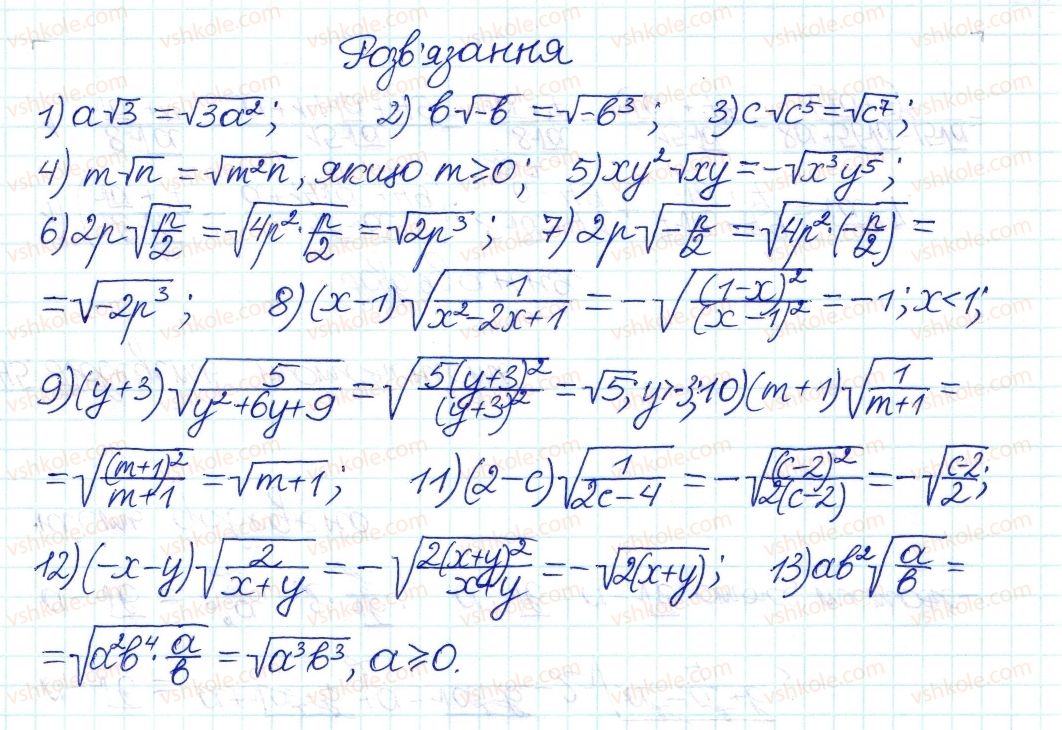 Розв'язання
1) a√3 = √3a²; 2) b√-b = √-b³; 3) c√c⁵ = √c⁷;
4) m√n = √m²n, якщо m ≥ 0; 5) xy²√xy = -√x³y⁵;
6) 2p√(p/2) = √(4p²·p/2) = √2p³; 7) 2p√(-p/2) = √(4p²·(-p/2)) =
= √-2p³; 8) (x-1)√(1/(x²-2x+1)) = -√((1-x)²/(x-1)²) = -1; x<1;
9) (y+3)√(5/(y²+6y+9)) = √(5(y+3)²/(y+3)²) = √5; y>-3; 10) (m+1)√(1/(m+1)) =
= √((m+1)²/(m+1)) = √(m+1); 11) (2-c)√(1/(2c-4)) = -√((c-2)²/(2(c-2))) = -√((c-2)/2);
12) (-x-y)√(2/(x+y)) = -√(2(x+y)²/(x+y)) = -√(2(x+y)); 13) ab²√(a/b) =
= √(a²b⁴·a/b) = √(a³b³), a ≥ 0.
vshkole.com